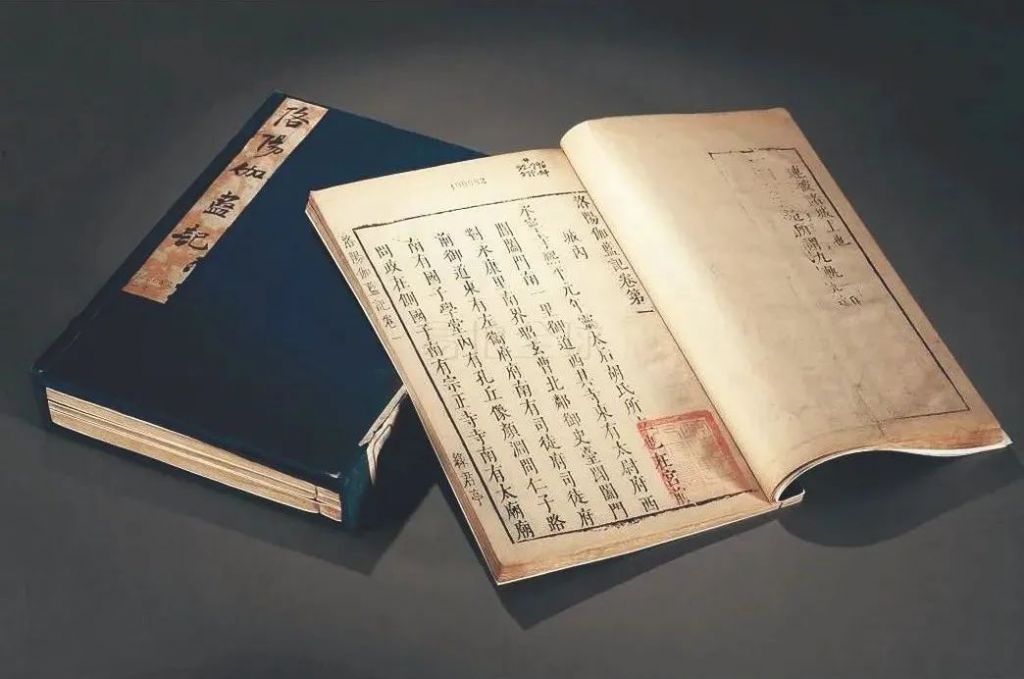 洛陽伽藍記
洛陽伽藍記卷第一
城内
永寧寺熙平元年靈太后胡氏所也在宮前
閶闔門南一里御道西其寺東有太尉府西
對永康里南界昭玄曹北鄰御史臺閶闔門
前御道東有左衛府府南有司徒府司徒府
南有國子學堂内有孔丘像顏淵問仁子路
問政在側國子南有宗正寺寺南有太廟廟
洛陽伽藍記卷一
綠君亭
諸城上也
所謂九軌